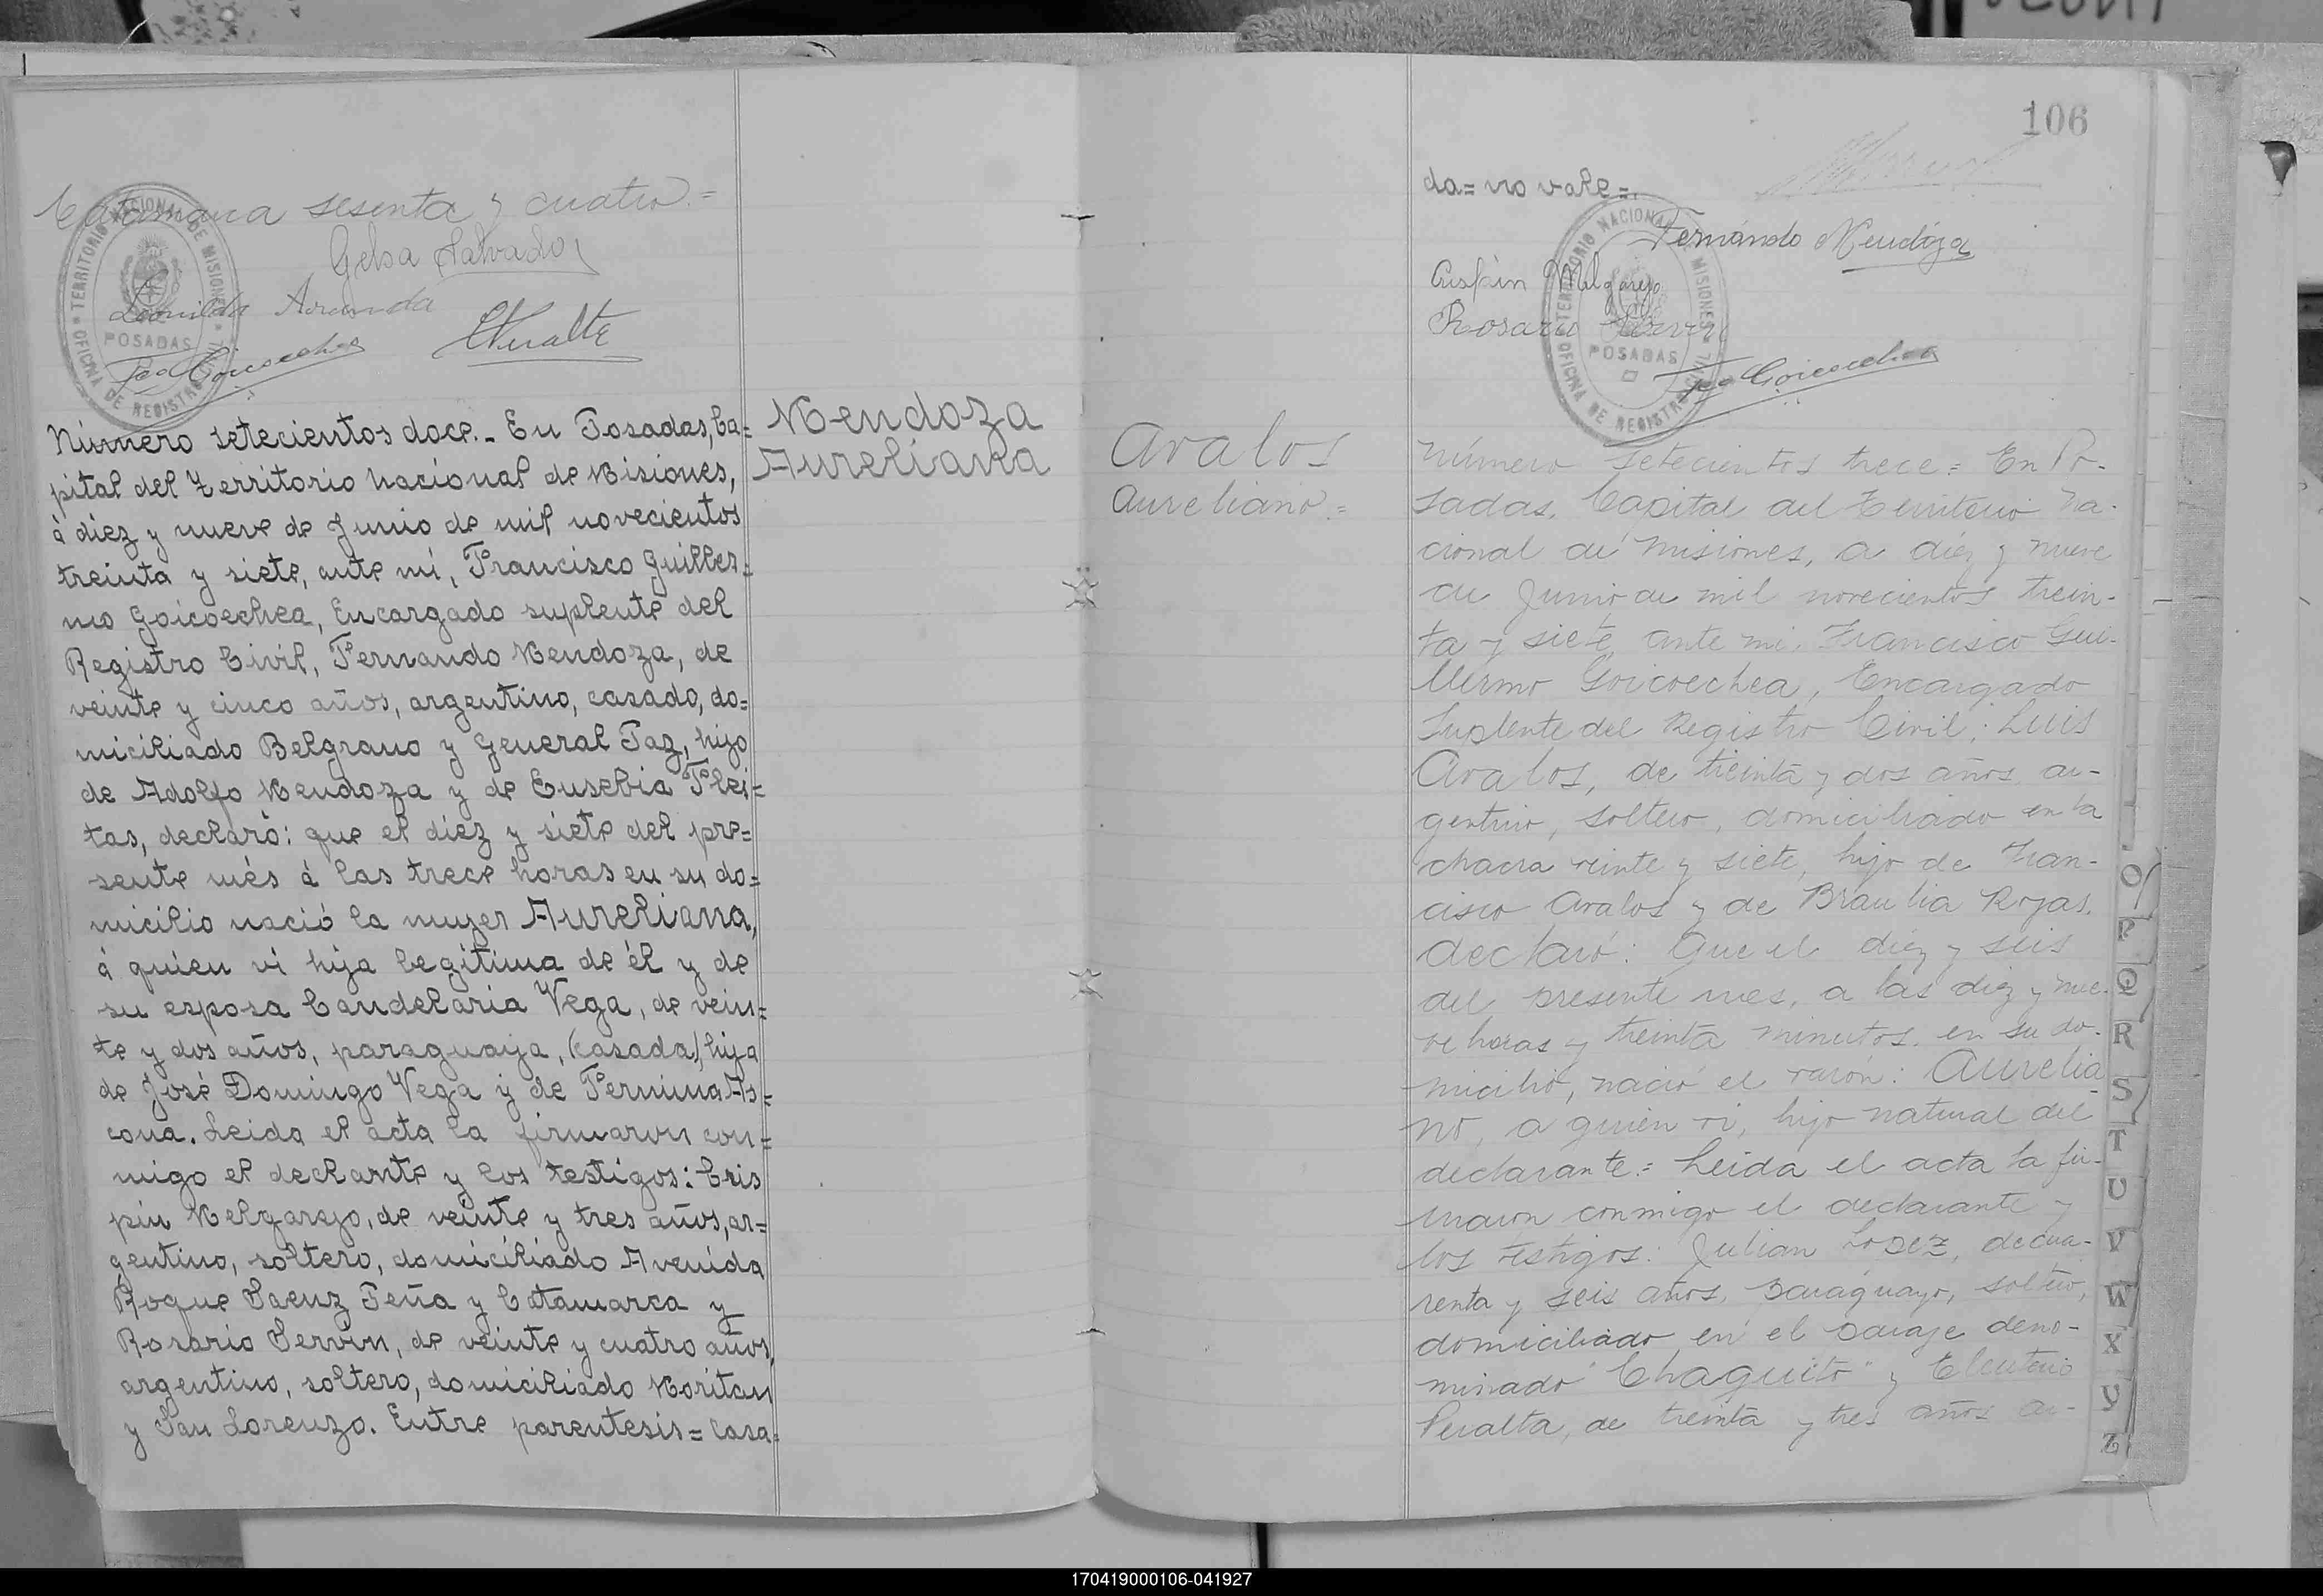 Catamarca sesenta y cuatro.=
Gelsa Salvador
Leonilda Aranda
TERRITORIO NACIONAL DE MISIONES
POSADAS
OFICINA DE REGISTRO CIVIL
Número setecientos doce.- En Posadas, Ca=
pital del Territorio Nacional de Misiones,
á diez y nueve de Junio de mil novecientos
treinta y siete, ante mí, Francisco Guiller=
mo Goicoechea, Encargado suplente del
Registro Civil, Fernando Mendoza, de
veinte y cinco años, argentino, casado, do=
miciliado Belgrano y General Paz, hijo
de Adolfo Mendoza y de Eusebia Flei=
tas, declaró: que el diez y siete del pre=
sente més á las trece horas en su do=
micilio nació la mujer Aureliana,
á quien vi hija legitima de él y de
su esposa Candelaria Vega, de vein=
te y dos años, paraguaya, (casada), hija
de José Domingo Vega y de Fermina As=
cona. Leida el acta la firmaron con=
migo el declante y los testigos: Cris
pin Melgarejo, de veinte y tres años, ar=
gentino, soltero, domiciliado Avenida
Roque Saenz Peña y Catamarca y
Rosario Servin, de veinte y cuatro años,
argentino, soltero, domiciliado Moritan
y San Lorenzo. Entre parentesis = Casa=
Mendoza
Aureliana
106
da = no vale =.
Fernándo Mendóza
Crispín Melgarejo
Rosario Servin
TERRITORIO NACIONAL DE MISIONES
POSADAS
OFICINA DE REGISTRO CIVIL
Fco Goicoechea
Avalos
Aureliano.=
Número setecientos trece = En Po-
sadas, Capital del Territorio Na-
cional de Misiones, a diez y nueve
de Junio de mil novecientos trein-
ta y siete, ante mi, Francisco Gui-
llermo Goicoechea, Encargado
Suplente del Registro Civil; Luis
Avalos, de treinta y dos años, ar-
gentino, soltero, domiciliado en la
chacra veinte y siete, hijo de Fran-
cisco Avalos y de Braulia Rojas,
declaró: Que el diez y seis
del presente mes, a las diez y nue-
ve horas y treinta minutos, en su do-
micilio, nació el varón: Aurelia
no, a quien vi, hijo natural del
declarante.= Leida el acta la fir-
maron conmigo el declarante y
los testigos: Julian Lopez, de cua-
renta y seis años, paraguayo, soltero,
domiciliado en el paraje deno-
minado "Chaquito" y Eleuterio
Peralta, de treinta y tres años ar-
O
P
Q
R
S
T
U
V
W
X
Y
Z
170419000106-041927